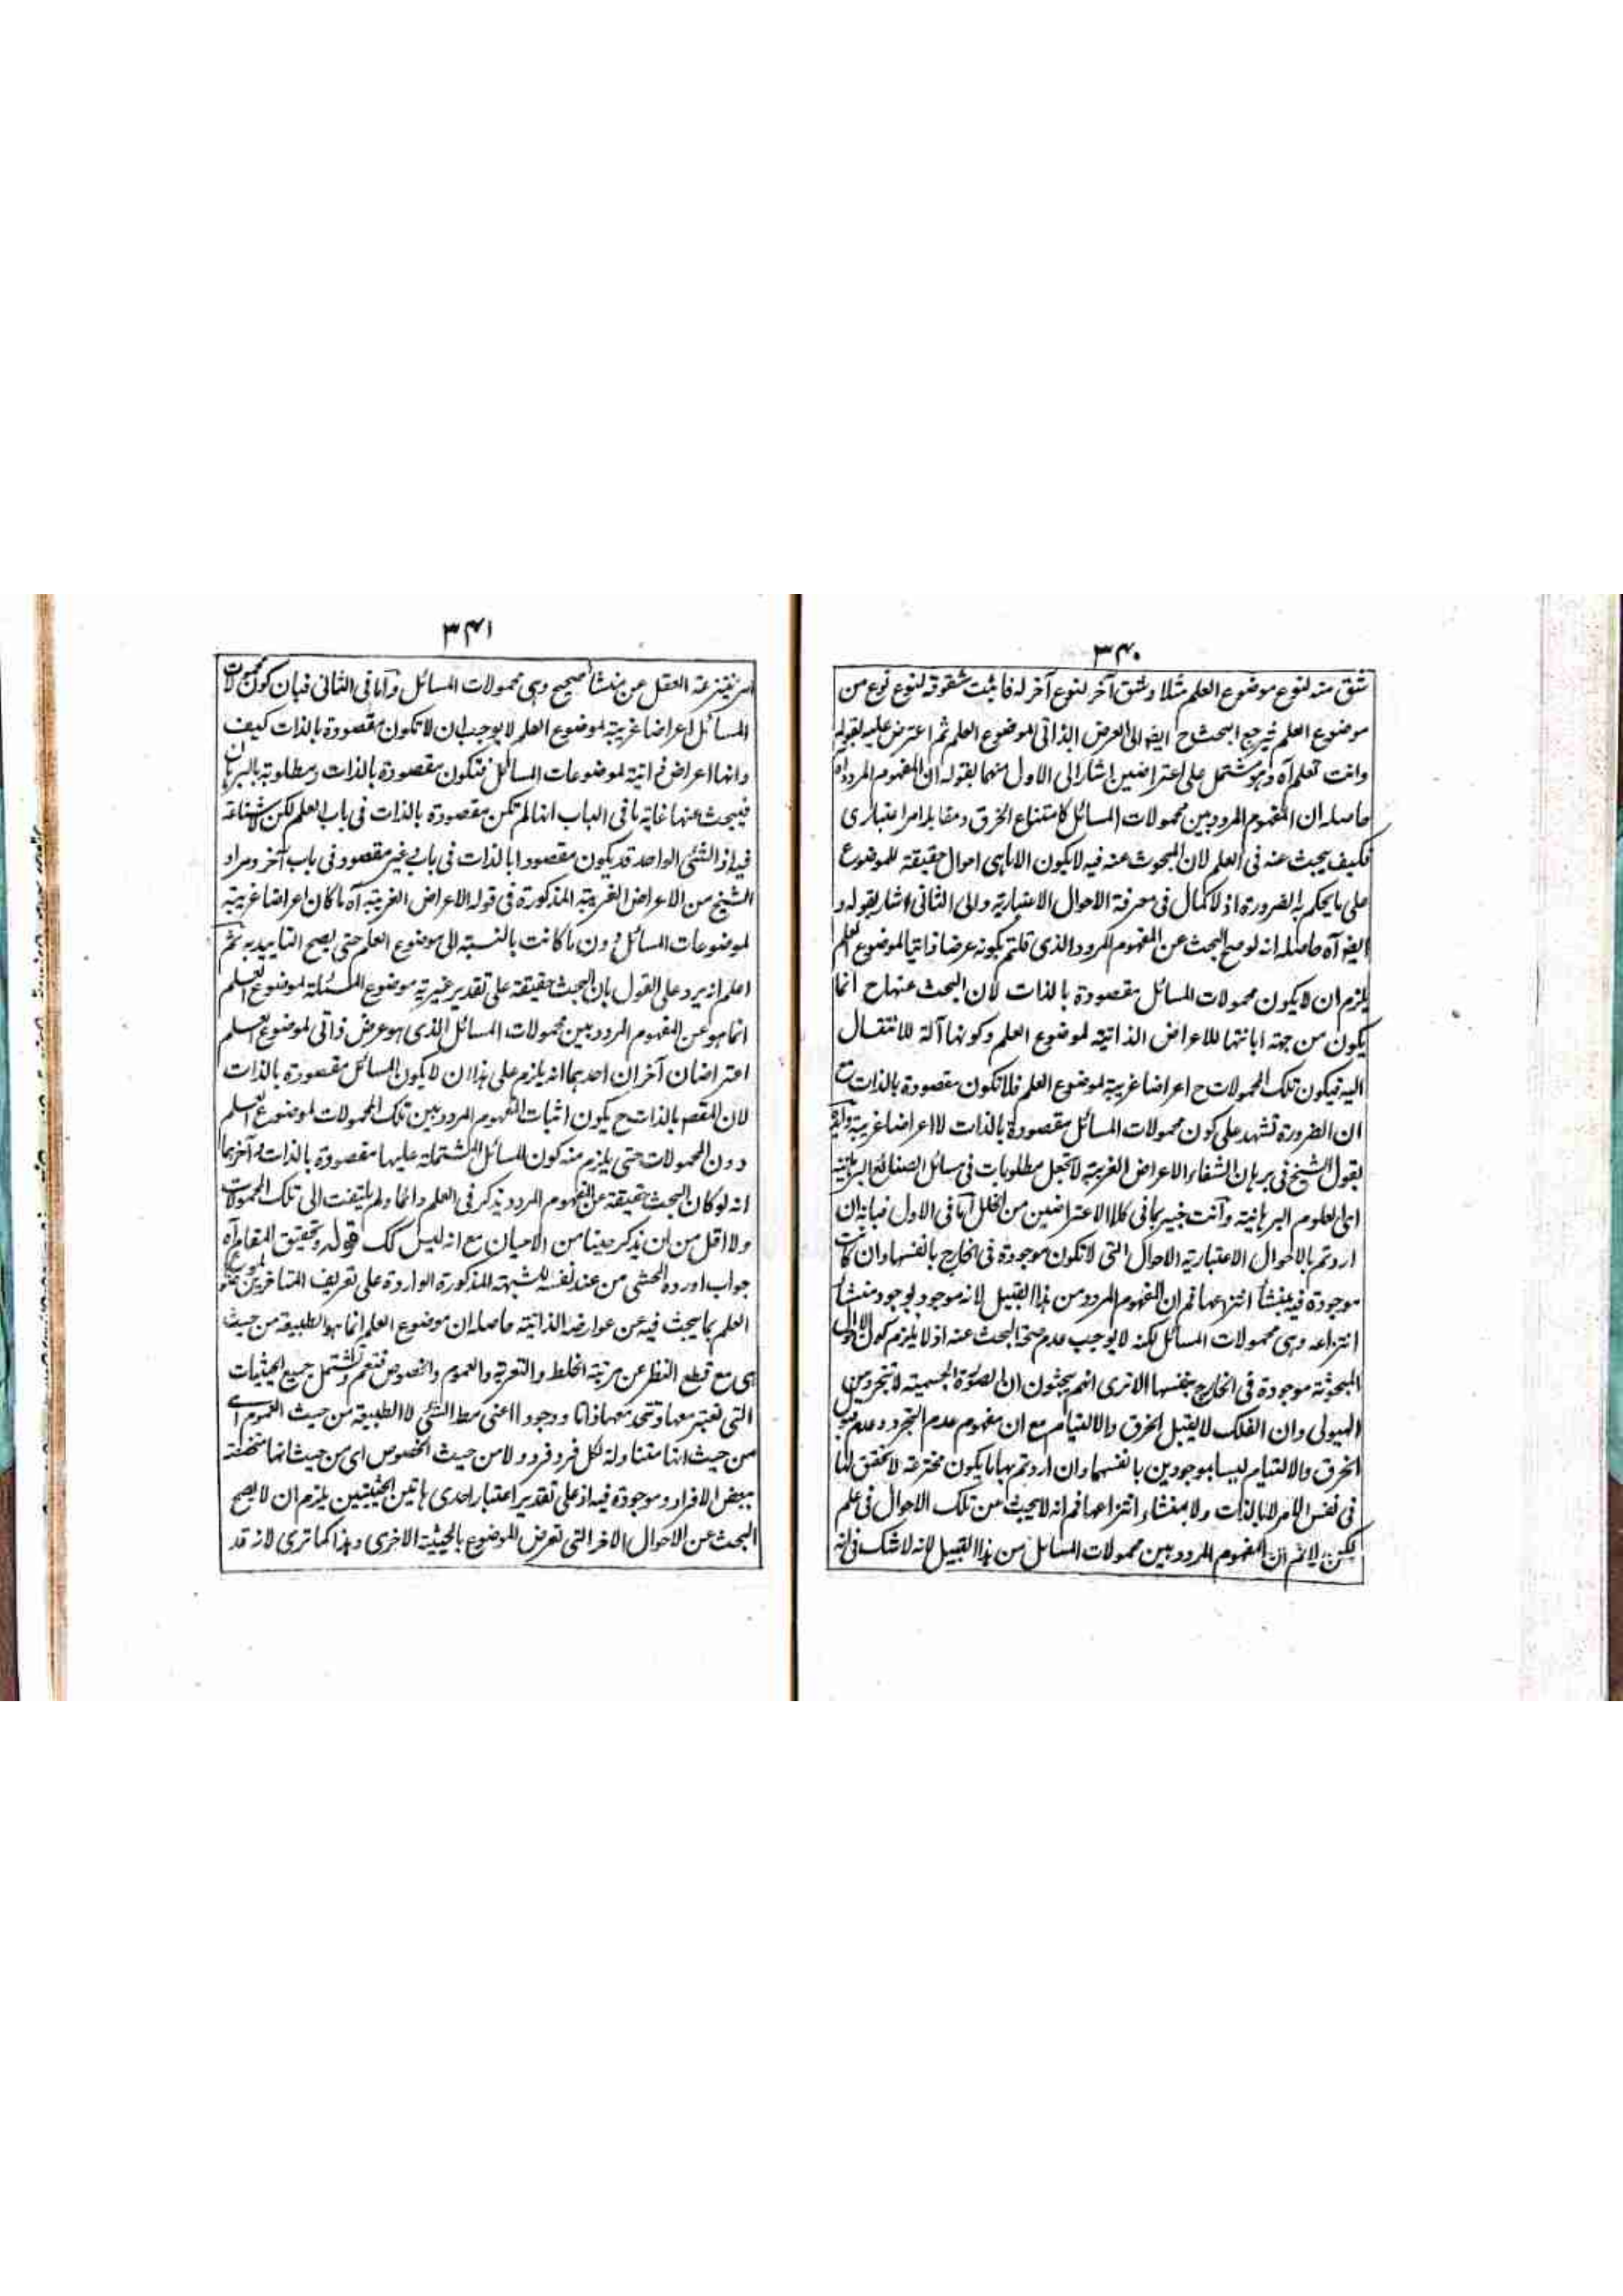 ٣٤٠
شق منه لنوع موضوع العلم مثلا وشق آخر لنوع آخر له فما ثبت شقوقه لنوع نوع من
موضوع العلم فيرجع البحث ح ايضا الى العرض الذاتى لموضوع العلم ثم اعترض عليه بقوله
وانت تعلم آه وهو مشتمل على اعتراضين اشار الى الاول منهما بقوله ان المفهوم المردد آه
حاصله ان المفهوم المردد بين محمولات المسائل كامتناع الخرق ومقابله امر اعتبارى
فكيف يبحث عنه فى العلم لان المبحوث عنه فيه لا يكون الا ما هى احوال حقيقة للموضوع
على ما يحكم به الضرورة اذ لا كمال فى معرفة الاحوال الاعتبارية والى الثانى اشار بقوله و
ايضا آه حاصله انه لو صح البحث عن المفهوم المردد الذى قلتم بكونه عرضا ذاتيا لموضوع العلم
يلزم ان لا يكون محمولات المسائل مقصودة بالذات لان البحث عنها ح انما
يكون من جهة ابانتها للاعراض الذاتية لموضوع العلم وكونها آلة للانتقال
اليه فيكون تلك المحمولات ح اعراضا غريبة لموضوع العلم فلا تكون مقصودة بالذات مع
ان الضرورة تشهد على كون محمولات المسائل مقصودة بالذات لا اعراضا غريبة وايده
بقول الشيخ فى برهان الشفاء الاعراض الغريبة لا تجعل مطلوبات فى مسائل الصنائع البرهانية
اى العلوم البرهانية وانت خبير بما فى كلا الاعتراضين من الخلل اما فى الاول فبانه ان
اردتم بالاحوال الاعتبارية الاحوال التى لا تكون موجودة فى الخارج بانفسها وان كانت
موجودة فيه بمنشأ انتزاعها فم ان المفهوم المردد من هذا القبيل لانه موجود بوجود منشأ
انتزاعه وهى محمولات المسائل لكنه لا يوجب عدم صحة البحث عنه اذ لا يلزم كون الاحوال
المبحوثة موجودة فى الخارج بنفسها الا ترى انهم يبحثون ان الصورة الجسمية لا تتجرد من
الهيولى وان الفلك لا يقبل الخرق والالتيام مع ان مفهوم عدم التجرد وعدم قبول
الخرق والالتيام ليسا بموجودين بانفسهما وان اردتم بها ما يكون مخترعة لا تحقق لها
فى نفس الامر لا بالذات ولا بمنشاء انتزاعها فم انه لا يبحث من تلك الاحوال فى علم
لكن لا نم ان المفهوم المردد بين محمولات المسائل من هذا القبيل لانه لا شك فى انه
٣٤١
امر ينتزعه العقل عن منشأ صحيح وهى محمولات المسائل واما فى الثانى فبان كون محمولات
المسائل اعراضا غريبة لموضوع العلم لا يوجب ان لا تكون مقصودة بالذات كيف
وانها اعراض ذاتية لموضوعات المسائل فتكون مقصودة بالذات ومطلوبة بالبرهان
فيبحث عنها غاية ما فى الباب انها لم تكن مقصودة بالذات فى باب العلم لكن لا شناعة
فيه اذ الشئ الواحد قد يكون مقصودا بالذات فى باب غير مقصود فى باب آخر ومراد
الشيخ من الاعراض الغريبة المذكورة فى قوله الاعراض الغريبة آه ما كان اعراضا غريبة
لموضوعات المسائل دون ما كانت بالنسبة الى موضوع العلم حتى يصح التاييد به ثم
اعلم انه يرد على القول بان البحث حقيقة على تقدير غيرية موضوع المسئلة لموضوع العلم
انما هو عن المفهوم المردد بين محمولات المسائل الذى هو عرض ذاتى لموضوع العلم
اعتراضان آخران احدهما انه يلزم على هذا ان لا يكون المسائل مقصودة بالذات
لان المقصم بالذات ح يكون اثبات المفهوم المردد بين تلك المحمولات لموضوع العلم
دون المحمولات حتى يلزم منه كون المسائل المشتملة عليها مقصودة بالذات وآخرهما
انه لو كان البحث حقيقة عن المفهوم المردد يذكر فى العلم دائما ولم يلتفت الى تلك المحمولات
ولا اقل من ان يذكر حينا من الاحيان مع انه ليس كك قوله وتحقيق المقام آه
جواب اورده المحشى من عند نفسه للشبهة المذكورة الواردة على تعريف المتاخرين لموضوع
العلم بما يبحث فيه عن عوارضه الذاتية حاصله ان موضوع العلم انما هو الطبيعة من حيث
هى مع قطع النظر عن مرتبة الخلط والتعرية والعموم والخصوص فتعم وتشتمل جميع الحيثيات
التى تعتبر معها وتتحد معها ذاتا ووجودا اعنى مط الشئ لا الطبيعة من حيث العموم اى
من حيث انها متناولة لكل فرد فرد ولا من حيث الخصوص اى من حيث انها متحققة
ببعض الافراد وموجودة فيه اذ على تقدير اعتبار احدى هاتين الحيثيتين يلزم ان لا يصح
البحث عن الاحوال الاخر التى تعرض للموضوع بالحيثية الاخرى وهذا كما ترى لانه قد